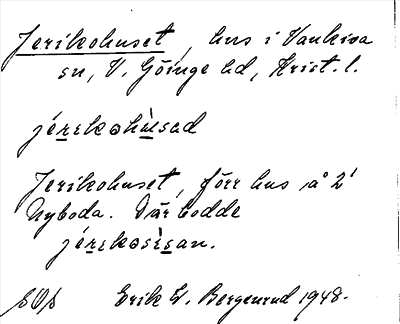 Jerikohuset, hus i Vankiva
sn, V. Göinge hd, Krist. l.
jérekohùsad
Jerikohuset, förr hus å 2¹
Nyboda. Där bodde
jérekosìsan.
Erik W. Bergenrud 1948.